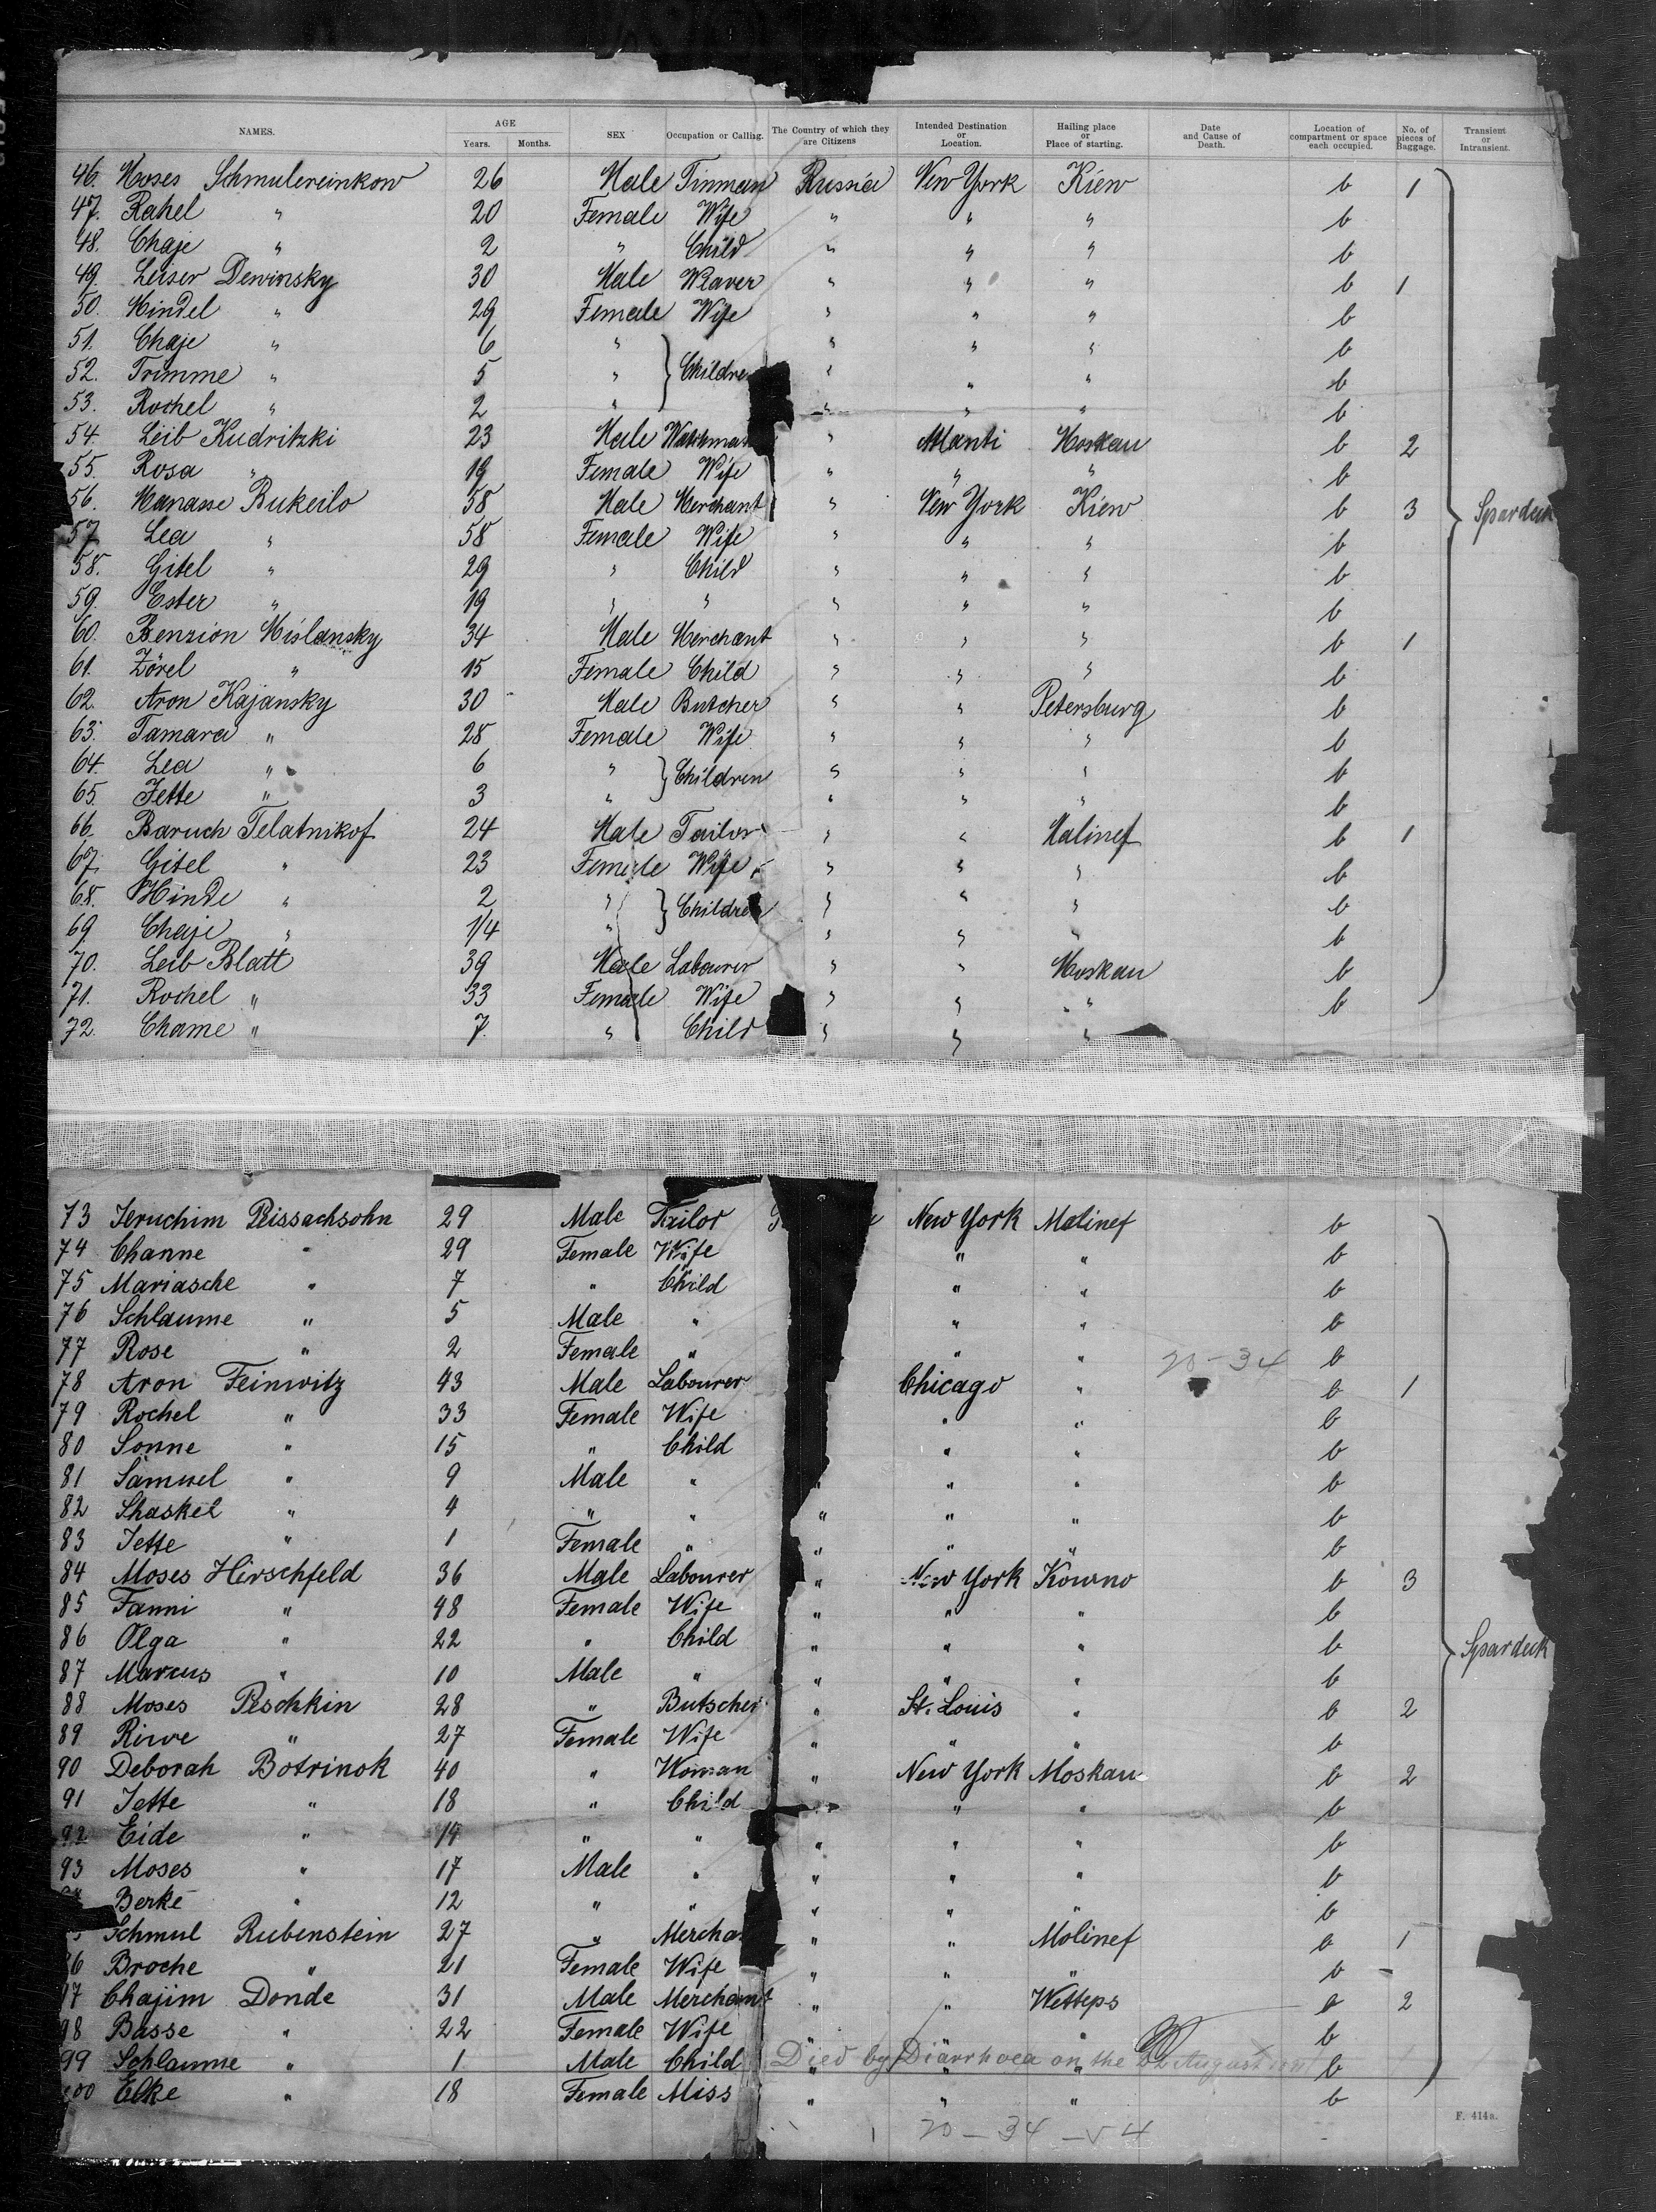 NAMES. AGE Years. Months. SEX Occupation or Calling. The Country of which they are Citizens Intended Destination or Location. Hailing place or Place of starting. Date and Cause of Death. Location of compartment or space each occupied. No. of pieces of Baggage. Transient or Intransient.
46. Moses Schmulereinkow 26 Male Tinman Russia New York Kiew b 1
47. Rahel " 20 Female Wife " " " b
48. Chaje " 2 " Child " " " b
49. Leiser Dewinsky 30 Male Weaver " " " b 1
50. Mindel " 29 Female Wife " " " b
51. Chaje " 6 " " " " b
52. Trimme " 5 " } Children " " " b
53. Rochel " 2 " " " " b
54. Leib Kudritzki 23 Male Watchma " Atlanti Moskau b 2
55. Rosa " 19 Female Wife " " " b
56. Manasse Bukeilo 58 Male Merchant " New York Kiew b 3 } Spardeck
57. Lea " 58 Female Wife " " " b
58. Gitel " 29 " Child " " " b
59. Ester " 19 " " " " " b
60. Benzion Mislansky 34 Male Merchant " " " b 1
61. Zörel " 15 Female Child " " " b
62. Aron Kajansky 30 Male Butcher " " Petersburg b
63. Tamara " 28 Female Wife " " " b
64. Lea " 6 " } Children " " " b
65. Jette " 3 " " " " b
66. Baruch Telatnikof 24 Male Tailor " " Malinef b 1
67. Gitel " 23 Female Wife " " " b
68. Hinde " 2 " } Children " " " b
69 Chaje " 1/4 " " " " b
70. Leib Blatt 39 Male Labourer " " Moskau b
71. Rochel " 33 Female Wife " " " b
72. Chame " 7 " Child " " "
73 Jeruchim Peissachsohn 29 Male Tailor New York Malinef b
74 Channe " 29 Female Wife " " b
75 Mariasche " 7 " Child " " b
76 Schlaume " 5 Male " " " b
77 Rose " 2 Female " " " 20-34 b
78 Aron Feinwitz 43 Male Labourer Chicago " b 1
79 Rochel " 33 Female Wife " " b
80 Sonne " 15 " Child " " b
81 Samuel " 9 Male " " " " b
82 Shaskel " 4 " " " " " b
83 Jette " 1 Female " " " " b
84 Moses Hirschfeld 36 Male Labourer " New York Kowno b 3
85 Fanni " 48 Female Wife " " " b
86 Olga " 22 " Child " " " b } Spardeck
87 Marcus " 10 Male " " " " b
88 Moses Peschkin 28 " Butscher " St. Louis " b 2
89 Riwe " 27 Female Wife " " " b
90 Deborah Botrinok 40 " Woman " New York Moskau b 2
91 Jette " 18 " Child " " b
92 Eide " 14 " " " " " b
93 Moses " 17 Male " " " " b
Berke " 12 " " " " " b
Schmul Rubenstein 27 " Mercha " " Molinef b 1
96 Broche " 21 Female Wife " " " b -
97 Chajim Donde 31 Male Merchant " " Wetteps b 2
98 Basse " 22 Female Wife " " " b
99 Schlaume " 1 Male Child Died by Diarrhoea on the 22 August b
100 Elke " 18 Female Miss " " " b
20-34-
F. 414a.